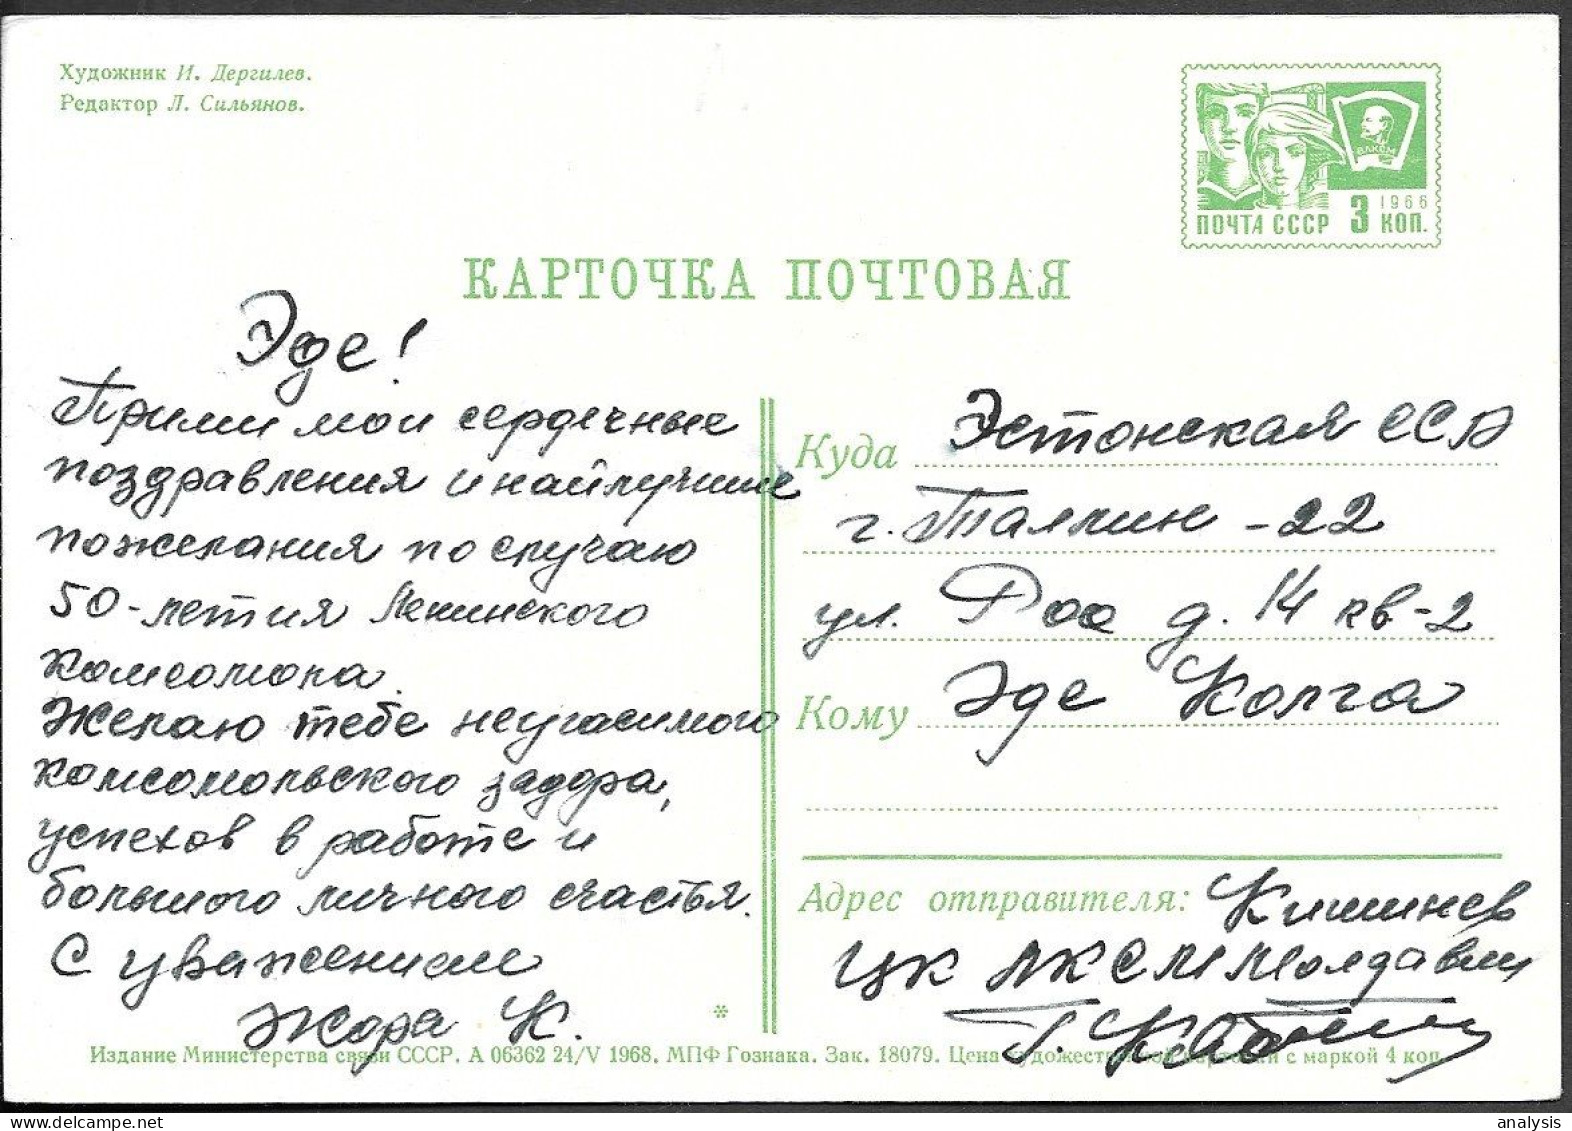 Художник И. Дергилев.
Редактор Л. Сильянов.
ВЛКСМ
1966
ПОЧТА СССР 3 КОП.
КАРТОЧКА ПОЧТОВАЯ
Эде!
Прими мои сердечные
поздравления и наилучшие
пожелания по случаю
50-летия Ленинского
комсомола.
Желаю тебе неугасимого
комсомольского задора,
успехов в работе и
большого личного счастья.
С уважением
Жора К.
Куда Эстонская ССР
г. Таллин - 22
ул. Роо д. 14 кв-2
Кому Эде Колга
Адрес отправителя: Кишинев
ЦК ЛКСМ Молдавии
Г.
*
Издание Министерства связи СССР. А 06362 24/V 1968. МПФ Гознака. Зак. 18079. Цена художественной карточки с маркой 4 коп.
analysis